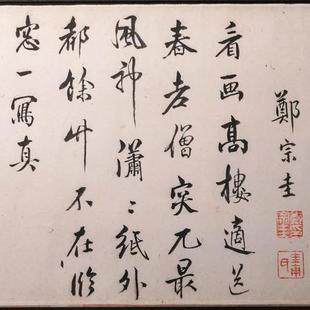 鄭宗圭
看画高樓適送
春老僧突兀最
風神瀟〻紙外
都餘竹不在臨
窓一寫真